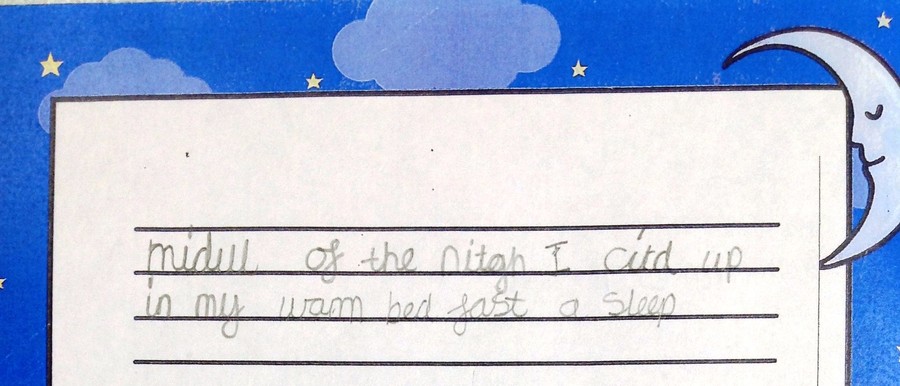 midull of the nitgh I cird up
in my warm bed fast a sleep